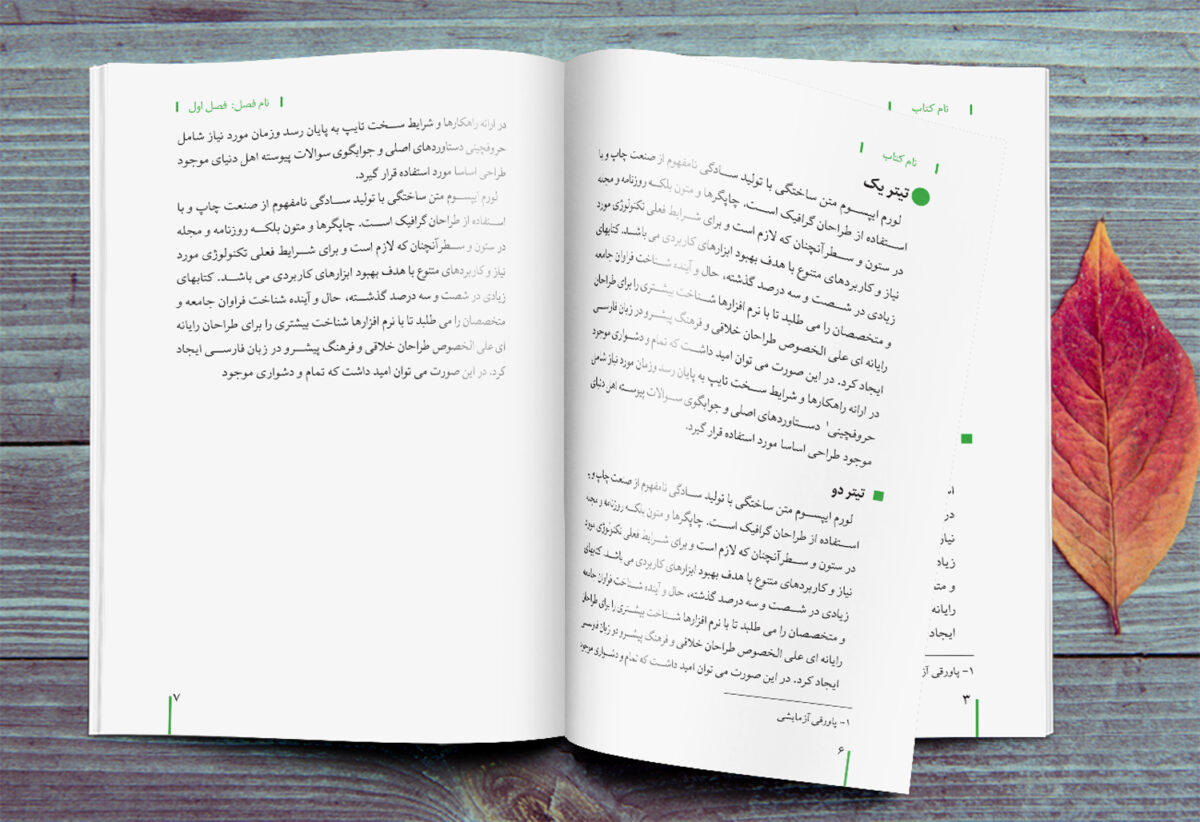 نام کتاب
در
نیاز
زیاد
و مت
رایانه
ایجاد
۱- پاورقی آز
۳
نام کتاب
تیتر یک
لورم ایپسوم متن ساختگی با تولید سادگی نامفهوم از صنعت چاپ و با
استفاده از طراحان گرافیک است. چاپگرها و متون بلکه روزنامه و مجله
در ستون و سطرآنچنان که لازم است و برای شرایط فعلی تکنولوژی مورد
نیاز و کاربردهای متنوع با هدف بهبود ابزارهای کاربردی می باشد. کتابهای
زیادی در شصت و سه درصد گذشته، حال و آینده شناخت فراوان جامعه
و متخصصان را می طلبد تا با نرم افزارها شناخت بیشتری را برای طراحان
رایانه ای علی الخصوص طراحان خلاقی و فرهنگ پیشرو در زبان فارسی
ایجاد کرد. در این صورت می توان امید داشت که تمام و دشواری موجود
در ارائه راهکارها و شرایط سخت تایپ به پایان رسد وزمان مورد نیاز شامل
حروفچینی۱ دستاوردهای اصلی و جوابگوی سوالات پیوسته اهل دنیای
موجود طراحی اساسا مورد استفاده قرار گیرد.
تیتر دو
لورم ایپسوم متن ساختگی با تولید سادگی نامفهوم از صنعت چاپ و با
استفاده از طراحان گرافیک است. چاپگرها و متون بلکه روزنامه و مجله
در ستون و سطرآنچنان که لازم است و برای شرایط فعلی تکنولوژی مورد
نیاز و کاربردهای متنوع با هدف بهبود ابزارهای کاربردی می باشد. کتابهای
زیادی در شصت و سه درصد گذشته، حال و آینده شناخت فراوان جامعه
و متخصصان را می طلبد تا با نرم افزارها شناخت بیشتری را برای طراحان
رایانه ای علی الخصوص طراحان خلاقی و فرهنگ پیشرو در زبان فارسی
ایجاد کرد. در این صورت می توان امید داشت که تمام و دشواری موجود
۱- پاورقی آزمایشی
۶
نام فصل: فصل اول
در ارائه راهکارها و شرایط سخت تایپ به پایان رسد وزمان مورد نیاز شامل
حروفچینی دستاوردهای اصلی و جوابگوی سوالات پیوسته اهل دنیای موجود
طراحی اساسا مورد استفاده قرار گیرد.
لورم ایپسوم متن ساختگی با تولید سادگی نامفهوم از صنعت چاپ و با
استفاده از طراحان گرافیک است. چاپگرها و متون بلکه روزنامه و مجله
در ستون و سطرآنچنان که لازم است و برای شرایط فعلی تکنولوژی مورد
نیاز و کاربردهای متنوع با هدف بهبود ابزارهای کاربردی می باشد. کتابهای
زیادی در شصت و سه درصد گذشته، حال و آینده شناخت فراوان جامعه و
متخصصان را می طلبد تا با نرم افزارها شناخت بیشتری را برای طراحان رایانه
ای علی الخصوص طراحان خلاقی و فرهنگ پیشرو در زبان فارسی ایجاد
کرد. در این صورت می توان امید داشت که تمام و دشواری موجود
۷